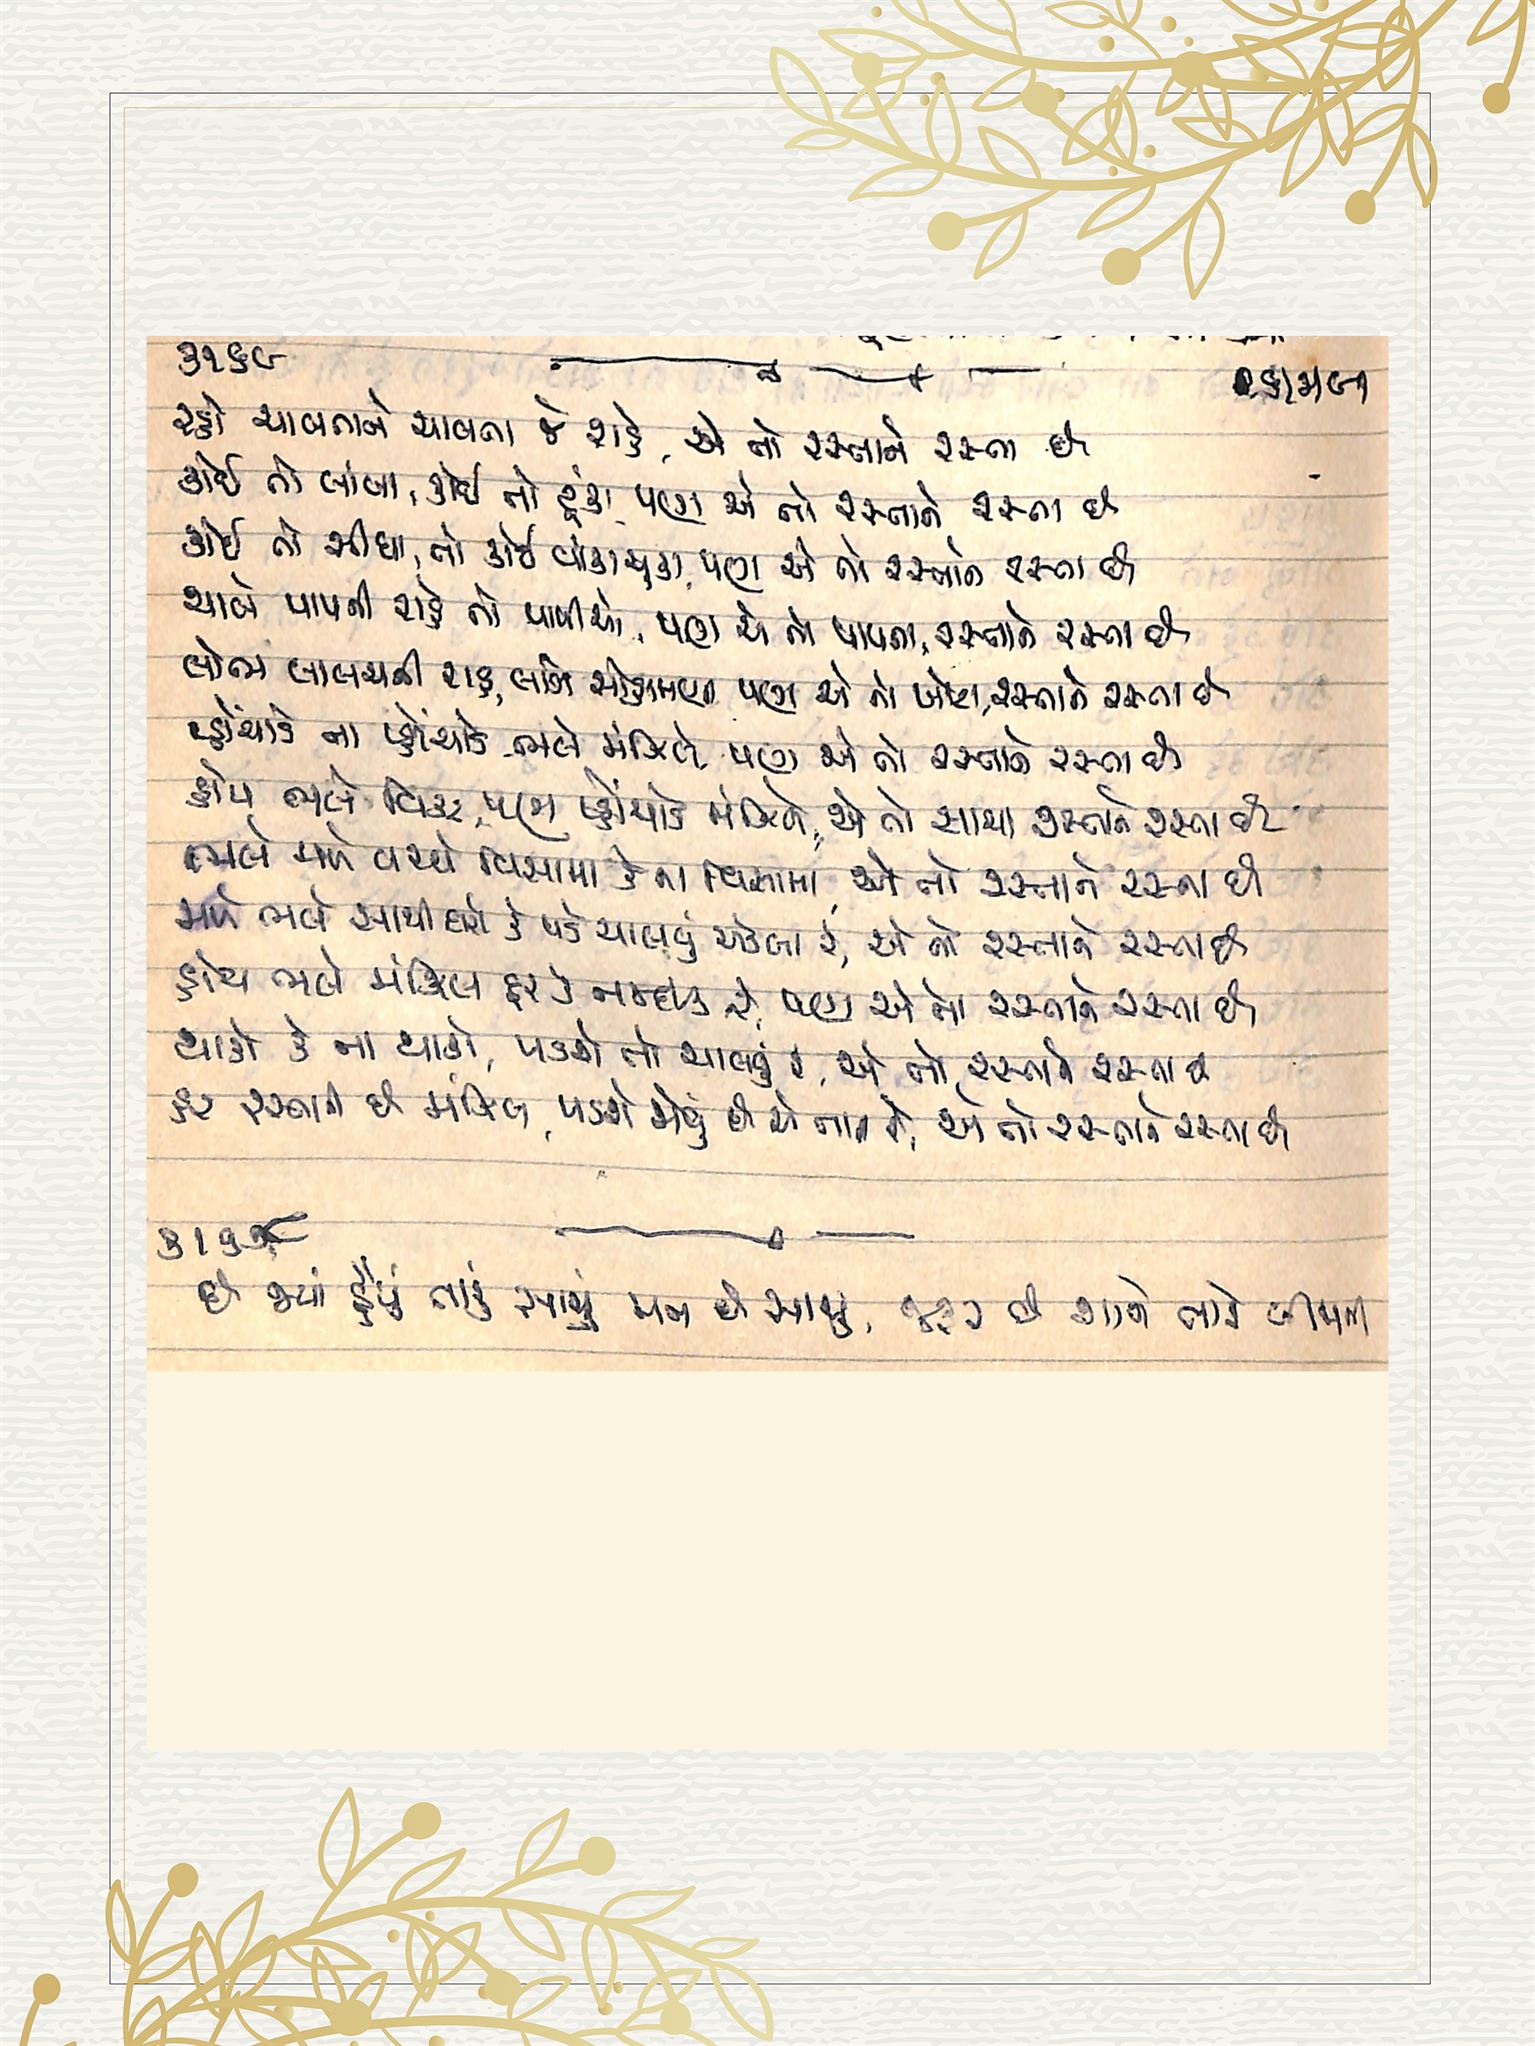 રહો ચાલતાને ચાલતા જે રાહે, એ તો રસ્તાને રસ્તા છે
કોઈ તો લાંબા, કોઈ તો ટૂંકા, પણ એ તો રસ્તાને રસ્તા છે
કોઈ તો સીધા, તો કોઈ વાંકાચૂકા, પણ એ તો રસ્તાને રસ્તા છે
ચાલે પાપની રાહે તો પાપીઓ, પણ એ તો પાપના, રસ્તાને રસ્તા છે
લોભ લાલચની રાહ, લાગે સોહામણા પણ એ તો ખોટા, રસ્તાને રસ્તા છે
પ્હોંચાડે ના પ્હોંચાડે ભલે મંઝિલે, પણ એ તો રસ્તાને રસ્તા છે
હોય ભલે વિકટ, પણ પ્હોંચાડે મંઝિલે, એ તો સાચા રસ્તાને રસ્તા છે
ભલે મળે વચ્ચે વિસામા કે ના વિસામા, એ તો રસ્તાને રસ્તા છે
મળે ભલે સાથીદારો કે પડે ચાલવું એકલા રે, એ તો રસ્તાને રસ્તા છે
હોય ભલે મંઝિલ દૂર કે નજદીક રે, પણ એ તો રસ્તાને રસ્તા છે
થાકો કે ના થાકો, પડશે તો ચાલવું રે, એ તો, રસ્તાને રસ્તા છે
હર રસ્તાને છે મંઝિલ, પડશે જોવું છે એ તારી રે, એ તો રસ્તાને રસ્તા છે
છે જ્યાં હૈયું તારું સાચું મન છે સાચું, જરૂર છે શાને તારે બીજાની